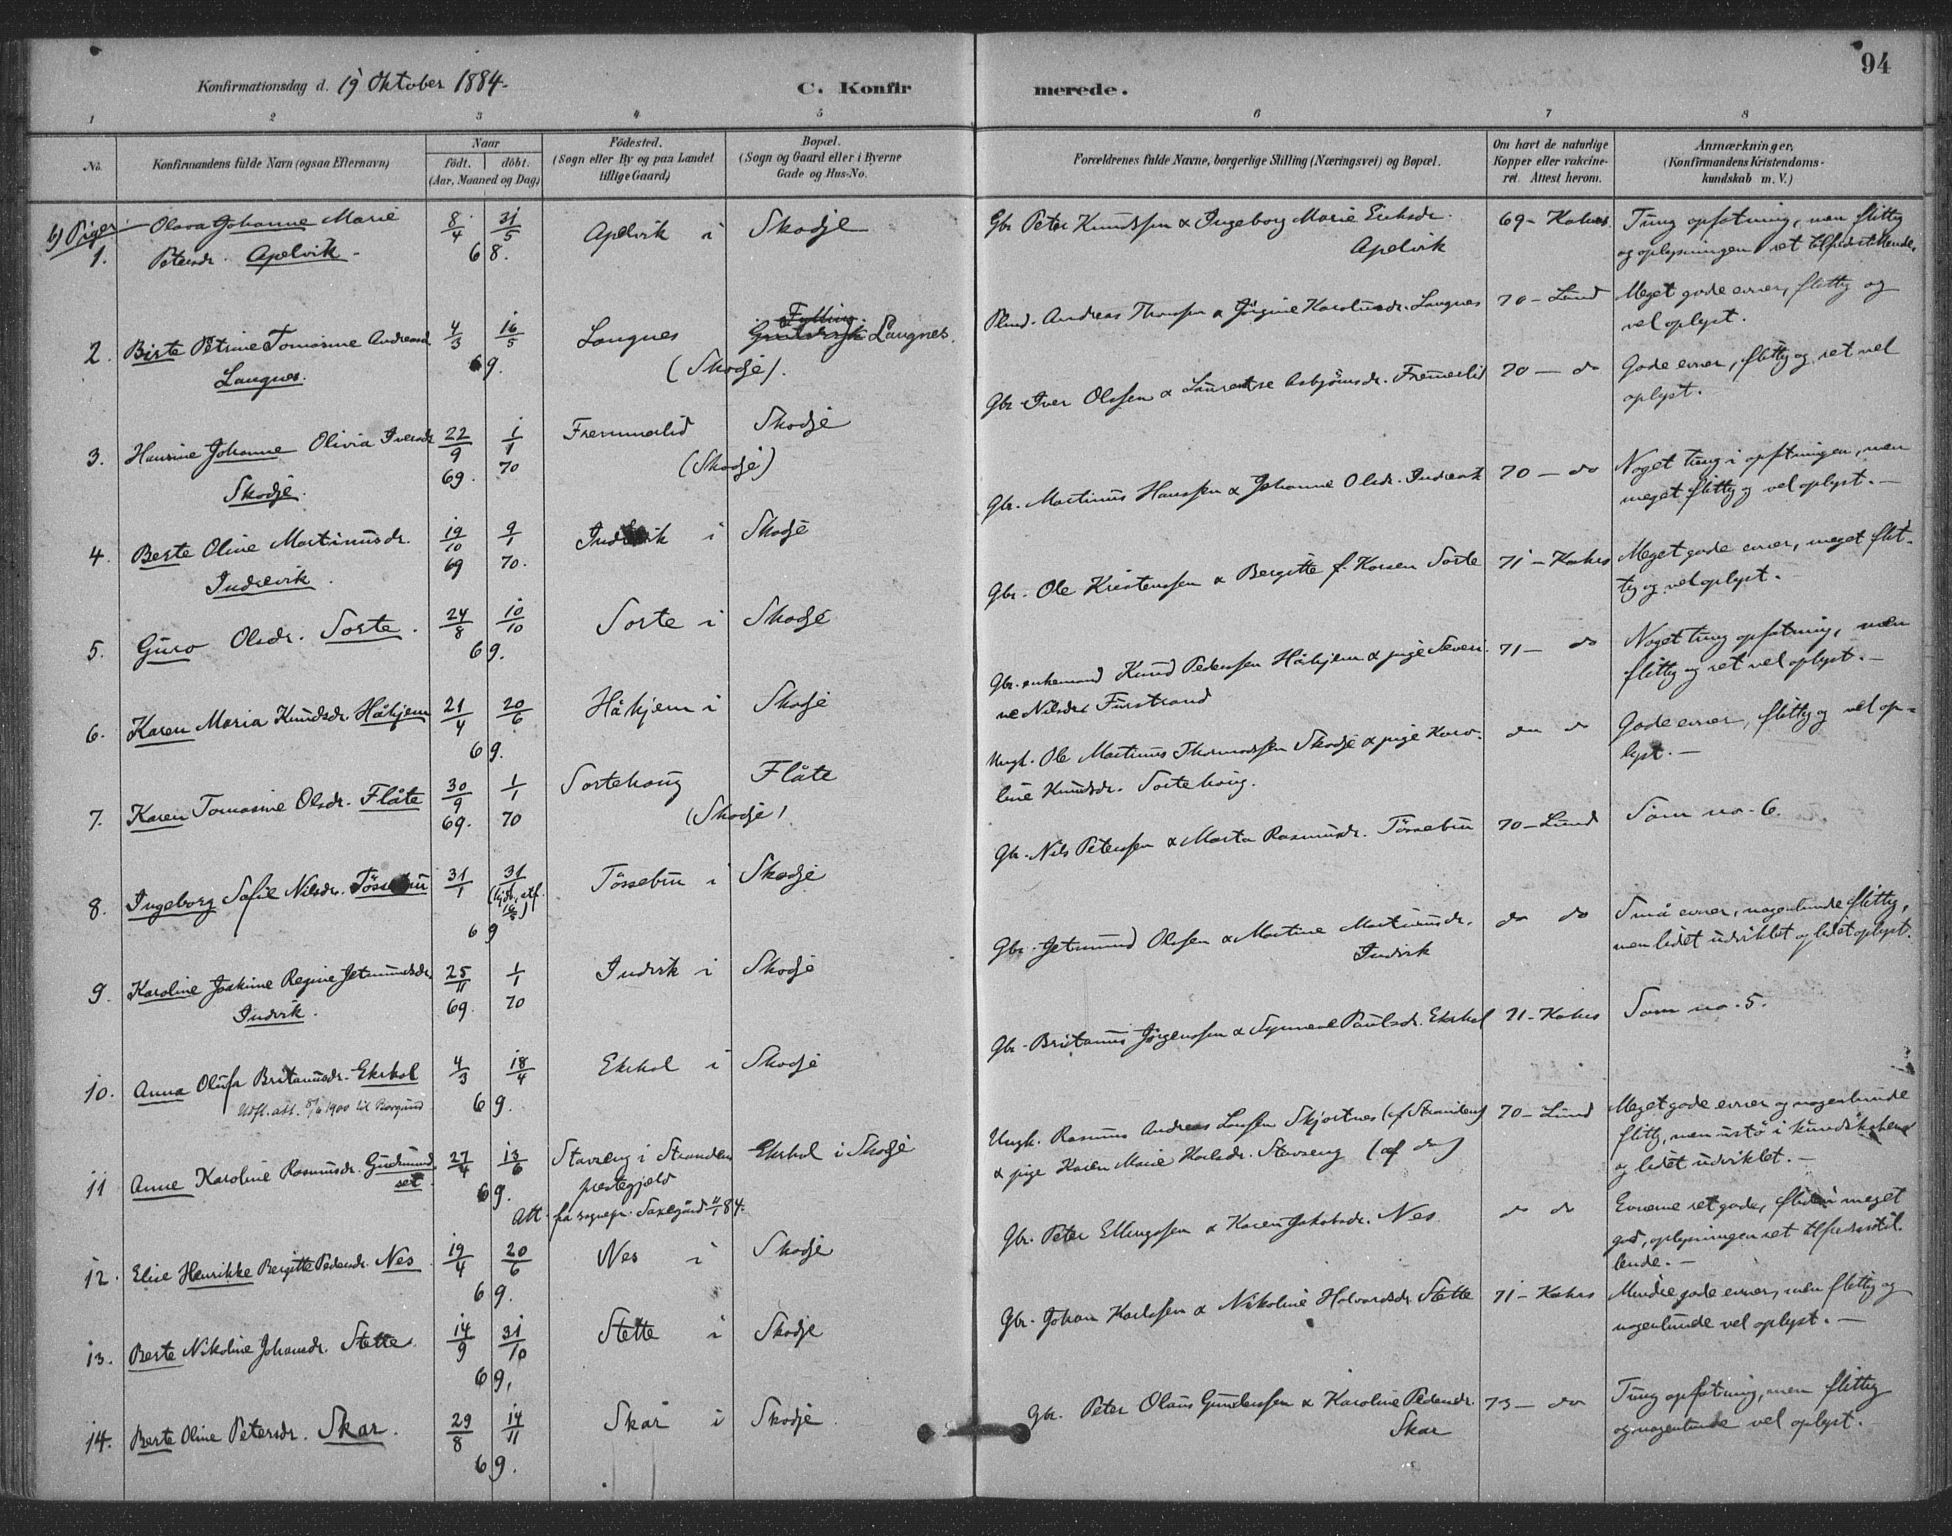 94
Konfirmationsdag d. 19 Oktober 1884. C. Konfirmerede.
1 2 3 4 5 6 7 8
No. Konfirmandens fulde Navn (ogsaa Efternavn) Naar født. døbt. (Aar, Maaned og Dag) Fødested. (Sogn eller By og paa Landet tillige Gaard) Bopæl. (Sogn og Gaard eller i Byerne Gade og Hus-No. Forældrenes fulde Navne, borgerlige Stilling (Næringsvei) og Bopæl. Om havt de naturlige Kopper eller vakcineret. Attest herom. Anmærkninger, (Konfirmandens Kristendomskundskab m. V.)
b) Piger
1. Olava Johanne Marie 8/4 31/5 Apelvik i Skodje Gbr Peter Knudssen & Ingeborg Marie Eriksdr. 69 - Kahrs Tung opfatning, men flittig
Petersdr. Apelvik. 68. Apelvik og oplysningen ret tilfredsstillende.
2. Birte Petrine Tomasine Andreasd 4/3 16/5 Langnes Fylling Langnes. Andreas Thomsen & Jørgine Karolusdr. Langnes 70 - Lund Meget gode evner, flittig og
Langnes. 69. (Skodje). vel oplyst.
3. Hansine Johanne Olivia Iversdr 22/9 1/1 Fremmerlid Skodje Gbr. Iver Olssen & Laurentse Asbjørnsdr. Fremerlid 70 - do Gode evner, flittig og ret vel
Skodje. 69. 70 (Skodje) oplyst.
4. Berte Oline Martinusdr. 19/10 9/1 Indrevik i Skodje Gbr. Martinus Hanssen & Johanne Olsdr. Indrevik 70 - do Noget tung i opfatningen, men
Indrevik. 69 70. meget flittig og vel oplyst. -
5. Guro Olsdr. Sorte. 24/8 10/10 Sorte i Skodje Gbr. Ole Kristenssen & Bergitte f. Korsen Sorte 71 - Kahrs Meget gode evner, meget flit-
69. tig og vel oplyst. -
6. Karen Maria Knudsdr. Håhjem 21/4 20/6 Håhjem i Skodje Gbr. enkemand Knud Pederssen Håhjem & pige Severi- 71 - do Noget tung opfatning, men
69. ne Nilsdr. Furstrand flittig og ret vel oplyst. -
7. Karen Tomasine Olsdr. Flåte 30/9 1/1 Sortehoug Flåte Ungk. Ole Martinus Thormodssen Skodje & pige Karo- do do Gode evner, flittig og vel op-
69. 70 (Skodje) line Knudsdr. Sortehoug. lyst. -
8. Ingeborg Sofie Nilsdr. Tøssebru 31/1 31 Tøssebru i Skodje Gbr. Nils Peterssen & Marta Rasmusdr. Tøssebru 70 - Lund Som no. 6.
69
9. Karoline Joakime Regine Jetmundsdr. 25/11 1/1 Indvik i Skodje Gbr. Jetmund Olssen & Martine Martinusdr. do do Små evner, nogenlunde flittig,
Indvik. 69. 70 Indvik men lidet udviklet og lidet oplyst.
10. Anna Olufa Britanusdr. Ekrhol 4/3 18/4 Ekrhol i Skodje Gbr. Britanus Jørgenssen & Synneve Paulsdr. Ekrhol 71 - Kahrs Som no. 5.
Udfl. att. 8/6 1900 til Borgund 69.
11 Anne Karoline Rasmusdr. Gudmund- 27/4 13/6 Stavseng i Stranden Ekrhol i Skodje Ungk. Rasmus Andreas Larssen Skjortnes (af Stranden) 70 - Lund Meget gode evner og nogenlunde
set. 69. prestegjeld & pige Karen Marie Karlsdr. Stavseng (af do) flittig, men ustø i kundskaberne
Att. fra sognepr. Saxegård 11/1 84. og lidet udviklet. -
12. Elise Henrikke Bergitte Pedersdr. Nes 19/4 20/6 Nes i Skodje Gbr. Peter Ellingssen & Karen Jakobsdr. Nes do do Evnerne ret gode, fliden meget
69. god, oplysningen ret tilfredsstil-
lende. -
13. Berte Nikoline Johansdr. Stette. 14/9 31/10 Stette i Skodje Gbr. Johan Karlssen & Nikoline Halvardsdr. Stette 71 - Kahrs Mindre gode evner, men flittig og
69. nogenlunde vel oplyst. -
14. Berte Oline Petersdr. Skar. 29/8 14/11 Skar i Skodje. Gbr. Peter Olaus Gunderssen & Karoline Pedersdr. 73 - do Tung opfatning, men flittig
69. Skar og nogenlunde vel oplyst. -